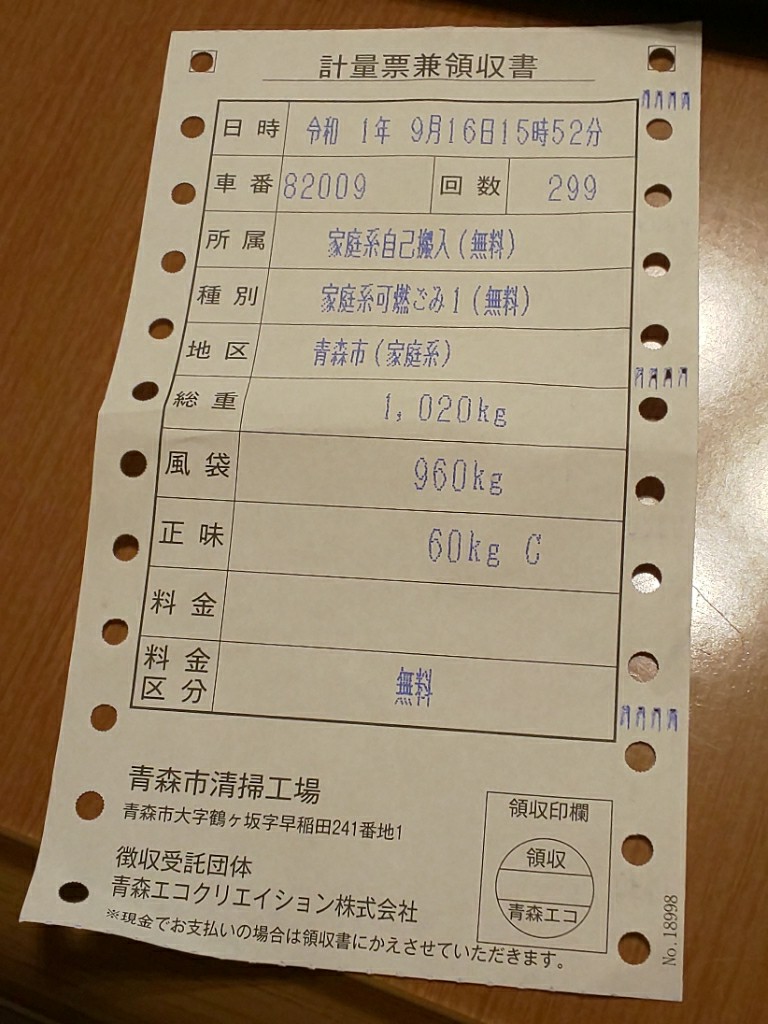 計量票兼領収書
日時 令和 1年 9月16日15時52分
車番 82009 回数 299
所属 家庭系自己搬入(無料)
種別 家庭系可燃ごみ1(無料)
地区 青森市(家庭系)
総重 1,020kg
風袋 960kg
正味 60kg C
料金
料金区分 無料
青森市清掃工場
青森市大字鶴ヶ坂字早稲田241番地1
徴収受託団体
青森エコクリエイション株式会社
※現金でお支払いの場合は領収書にかえさせていただきます。
領収印欄
領収
青森エコ
No.18998